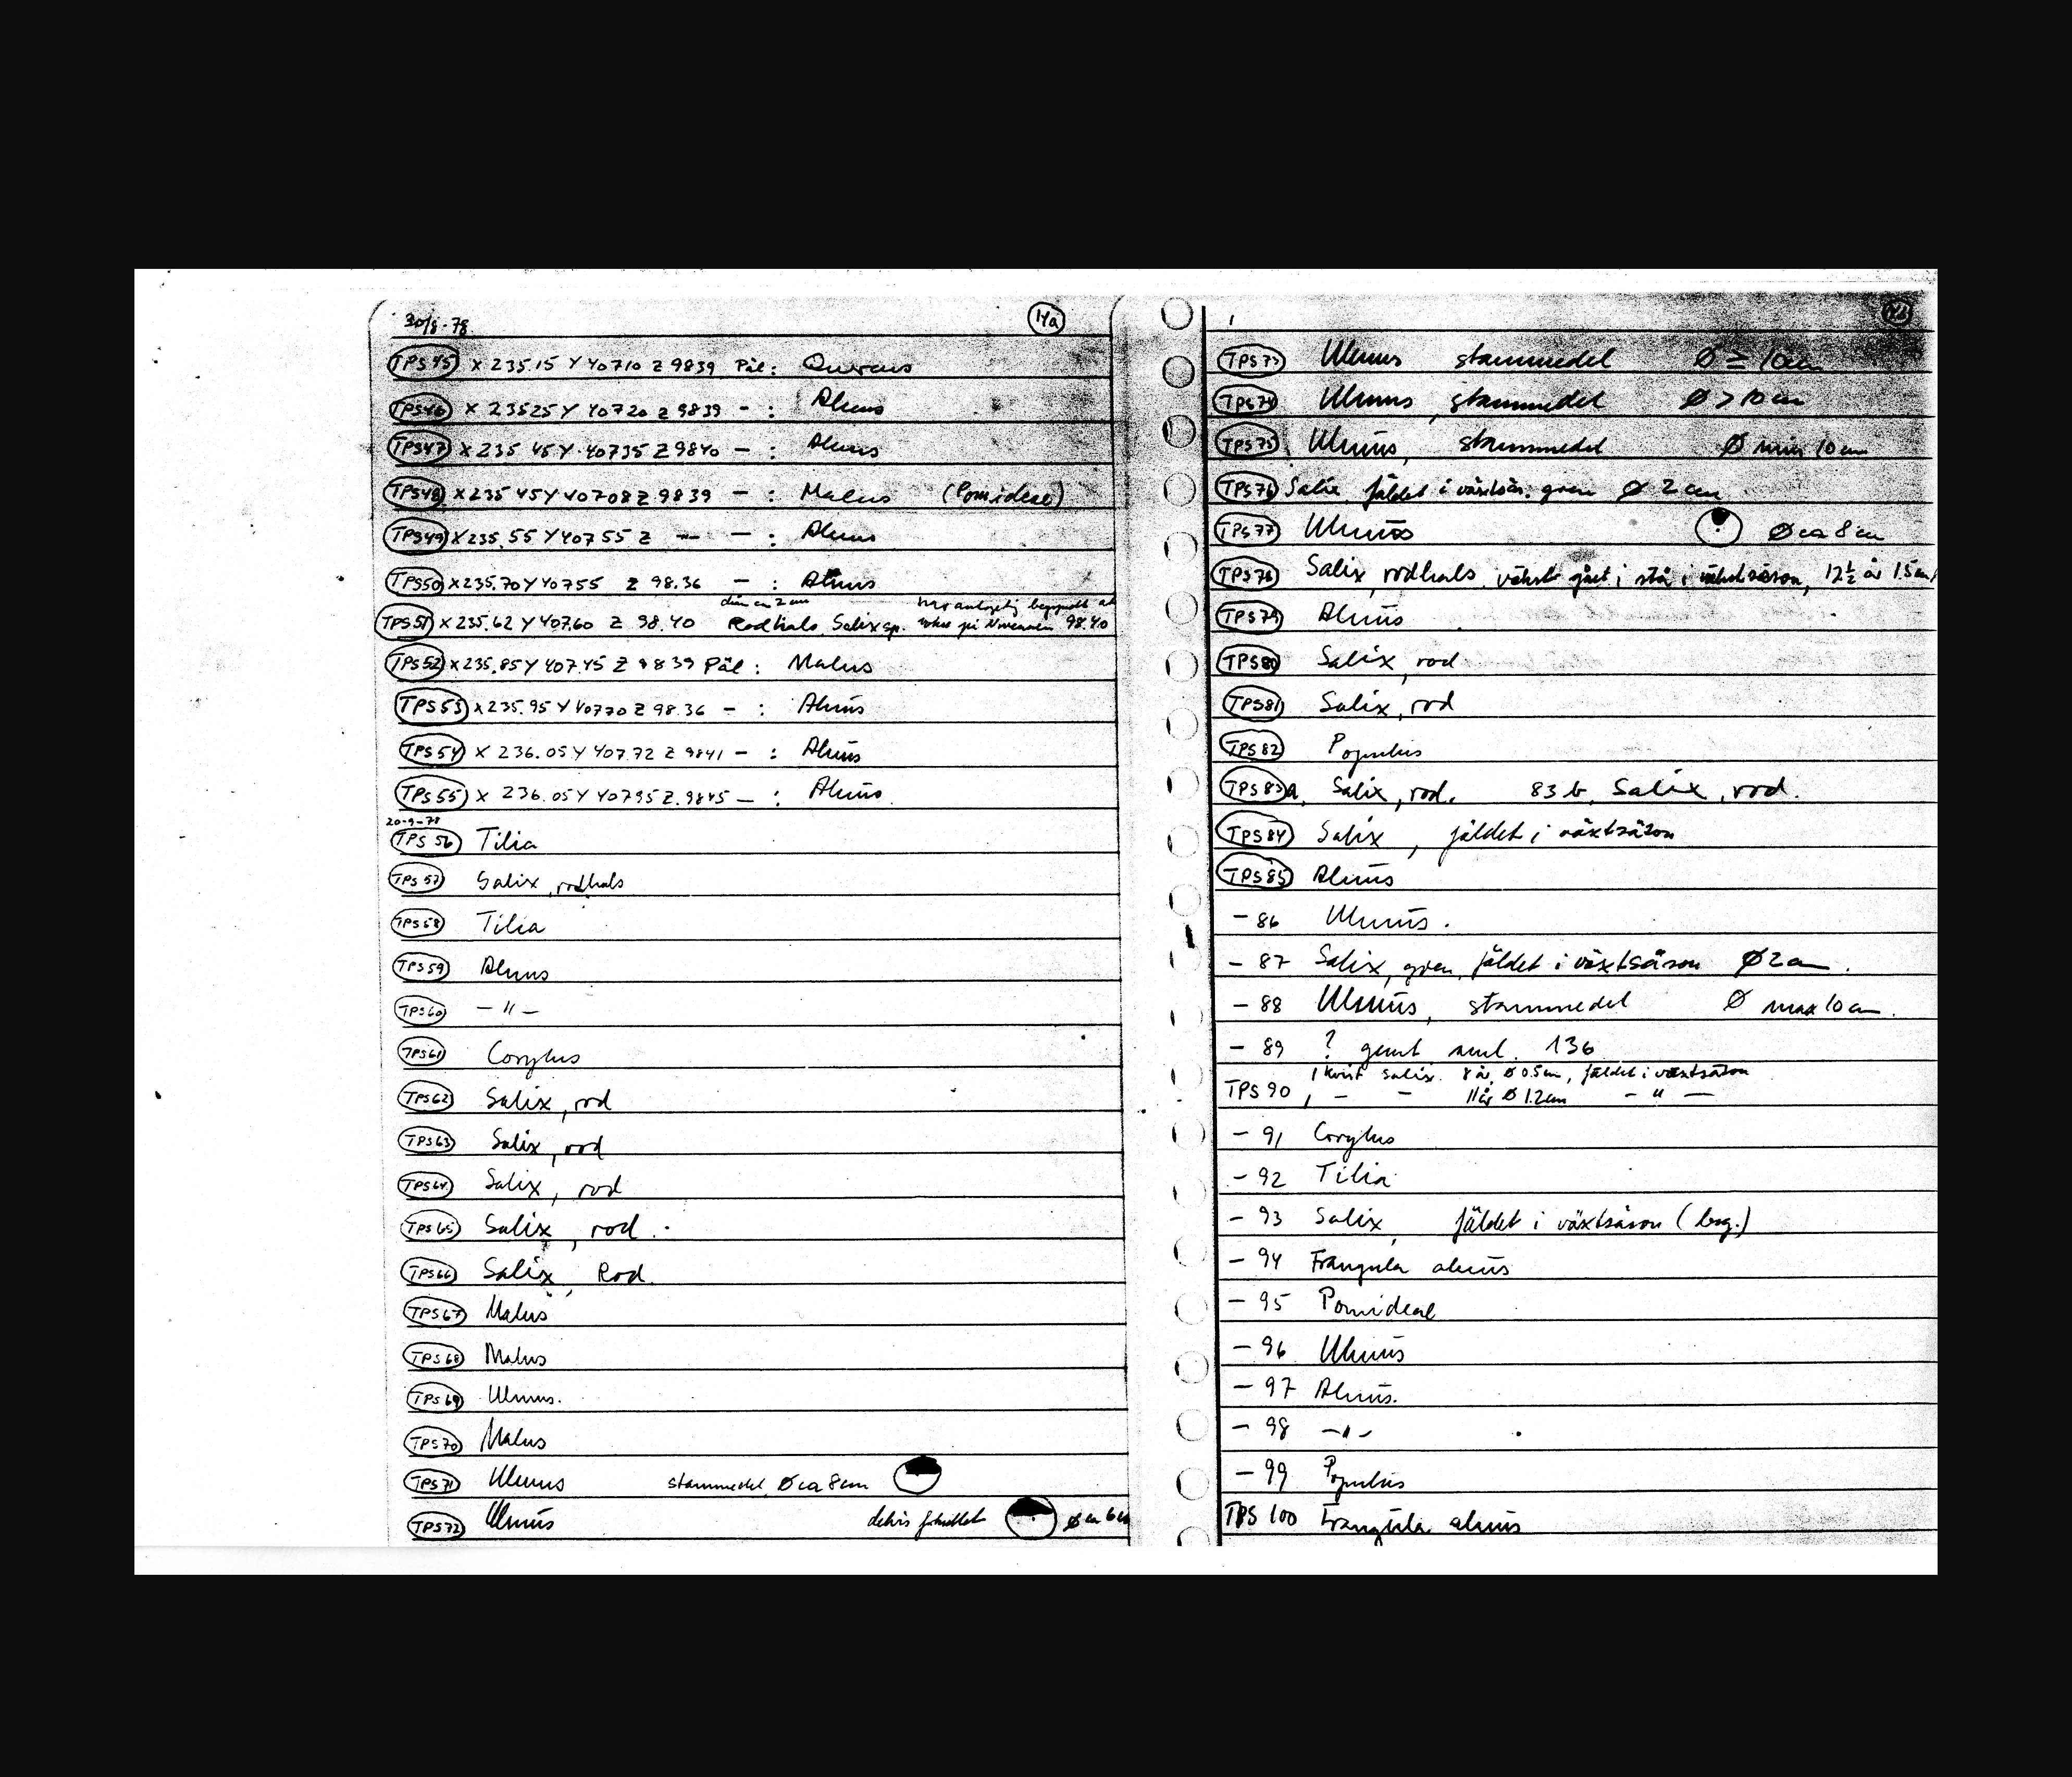 30/8-78 14a
TPS45 X 235.15 Y 40710 Z 9839 Pål: Quercus
TPS46 X 23525 Y 40720 Z 9839 - : Alnus
TPS47 X 235 45 Y 40735 Z 9840 - : Alnus
TPS48 X 235 45 Y 40708 Z 9839 - : Malus (Pomideae)
TPS49 X 235.55 Y 407 55 Z — - : Alnus
TPS50 X 235.70 Y 40755 Z 98.36 - : Alnus
diam ca 2 cm
TPS51 X 235.62 Y 407.60 Z 98.40 Rodhals, Salix sp. 98.40
TPS52 X 235.85 Y 407.45 Z 9839 Pål : Malus
TPS53 X 235.95 Y 40770 Z 98.36 - : Alnus
TPS54 X 236.05 Y 407.72 Z 9841 - : Alnus
TPS55 X 236.05 Y 40795 Z 9845 - : Alnus
20-9-78
TPS 56 Tilia
TPS 57 Salix, rodhals
TPS 58 Tilia
TPS59 Alnus
TPS60 - " -
TPS61 Corylus
TPS62 Salix, rod
TPS63 Salix, rod
TPS64 Salix, rod
TPS65 Salix, rod.
TPS66 Salix, Rod.
TPS67 Malus
TPS68 Malus
TPS69 Ulmus.
TPS70 Malus
TPS71 Ulmus stammedel, Ø ca 8cm
TPS72 Ulmus delvis Ø ca 6 cm
TPS73 Ulmus stammedel Ø ≥ 10cm
TPS74 Ulmus, stammedel Ø > 10 cm
TPS75 Ulmus, stammedel Ø min 10 cm
TPS76 Salix, fäldet i växtsäs. gren Ø 2 cm
TPS77 Ulmus Ø ca 8 cm
TPS78 Salix, rodhals, gået i stå i 12½ år 1.5 cm
TPS79 Alnus
TPS80 Salix, rod
TPS81 Salix, rod
TPS82 Populus
TPS83a, Salix, rod. 83 b, Salix, rod.
TPS84 Salix, fäldet i växtsäson
TPS85 Alnus
- 86 Ulmus.
- 87 Salix, gren, fäldet i växtsäson Ø 2 cm.
- 88 Ulmus, stammedel Ø max 10 cm.
- 89 ? gemt 136
TPS 90 1 kvist Salix. 8 år, Ø 0.5cm, fäldet i växtsäson
1 - - 11 år Ø 1.2cm - " -
- 91 Corylus
- 92 Tilia
- 93 Salix, fäldet i växtsäson (beg.)
- 94 Frangula alnus
- 95 Pomideae
- 96 Ulmus
- 97 Alnus.
- 98 - " -
- 99 Populus
TPS 100 Frangula alnus